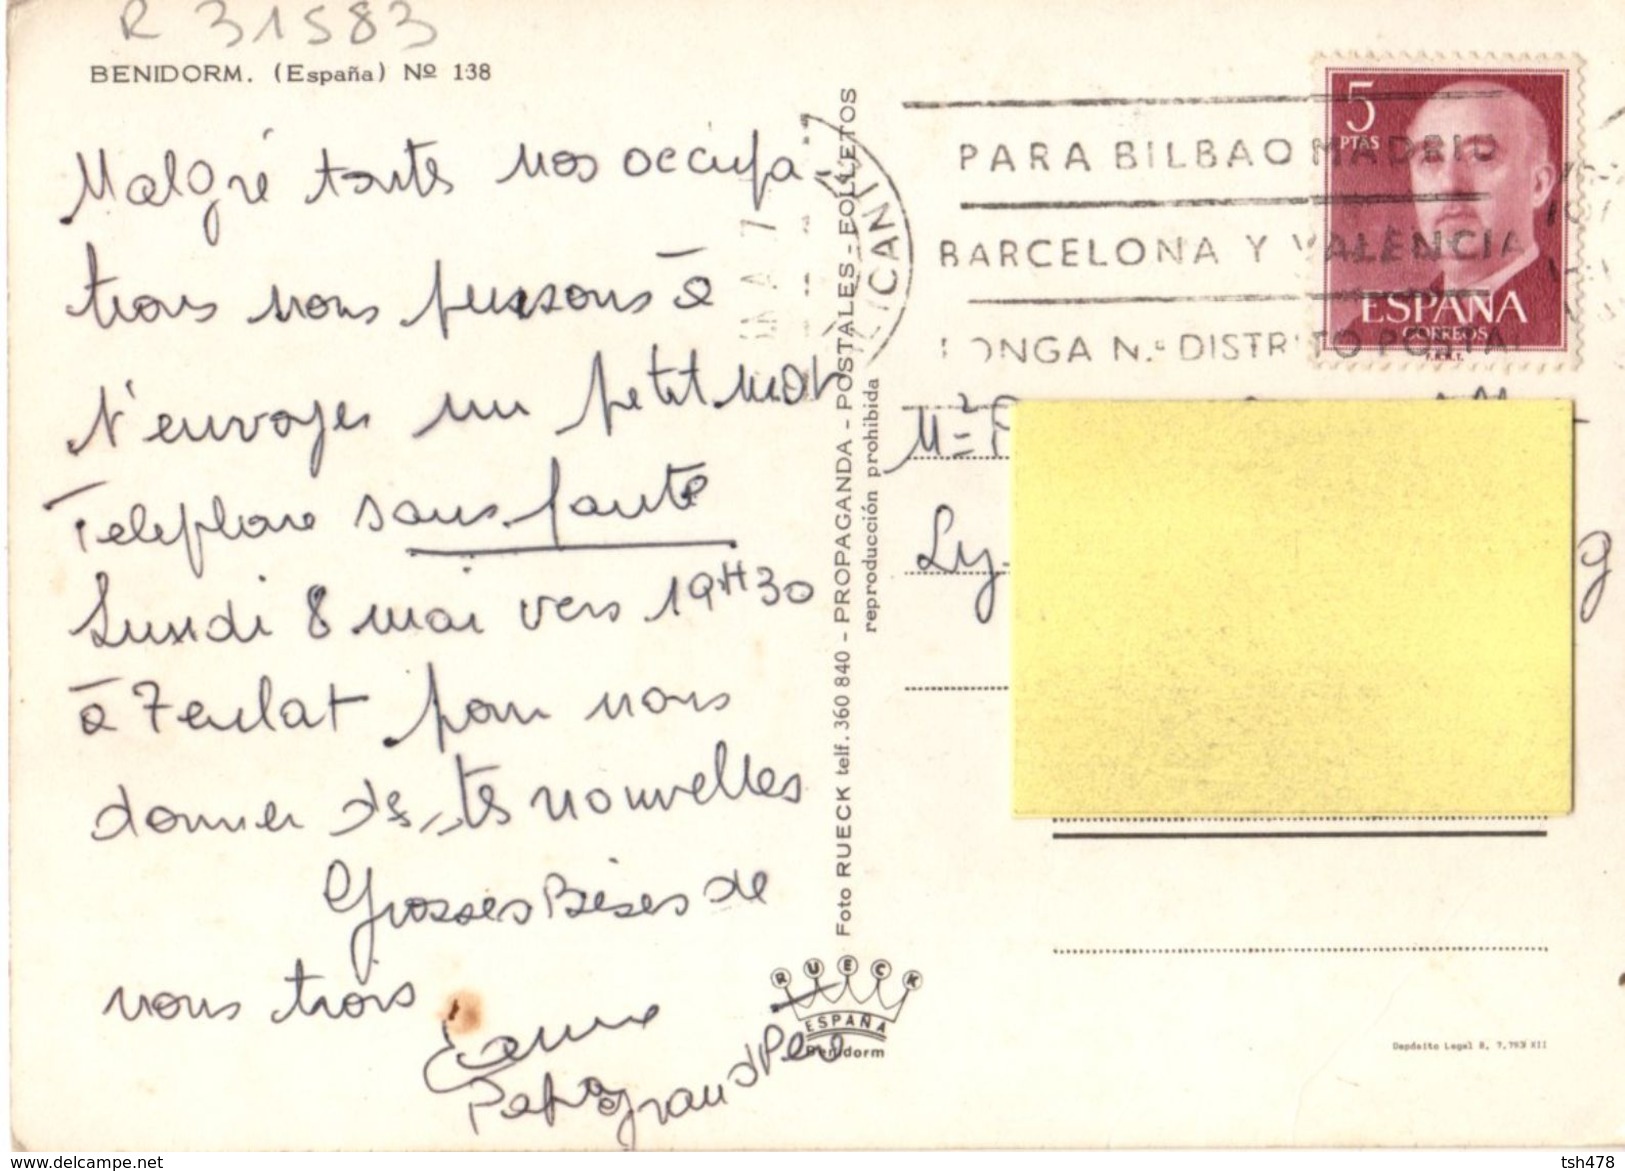 R 31583
BENIDORM. (España) Nº 138
Malgré toute nos occupa
tions nous pensons à
t'envoyer un petit mot
Telephone sans faute
Lundi 8 mai vers 19H30
à Zenlat pour nous
donner de tes nouvelles
Grosses Bises de
nous trois
Papa Grand Père
Foto RUECK telf. 360 840 - PROPAGANDA - POSTALES - FOLLETOS
reproducción prohibida
RUECK
ESPAÑA
Benidorm
5
PTAS
ESPAÑA
CORREOS
F.N.M.T.
PARA BILBAO MADRID
BARCELONA Y VALENCIA
PONGA N.º DISTRITO POSTAL
(ALICANTE)
Ly
g
Depósito Legal B.
www.delcampe.net
tsh478